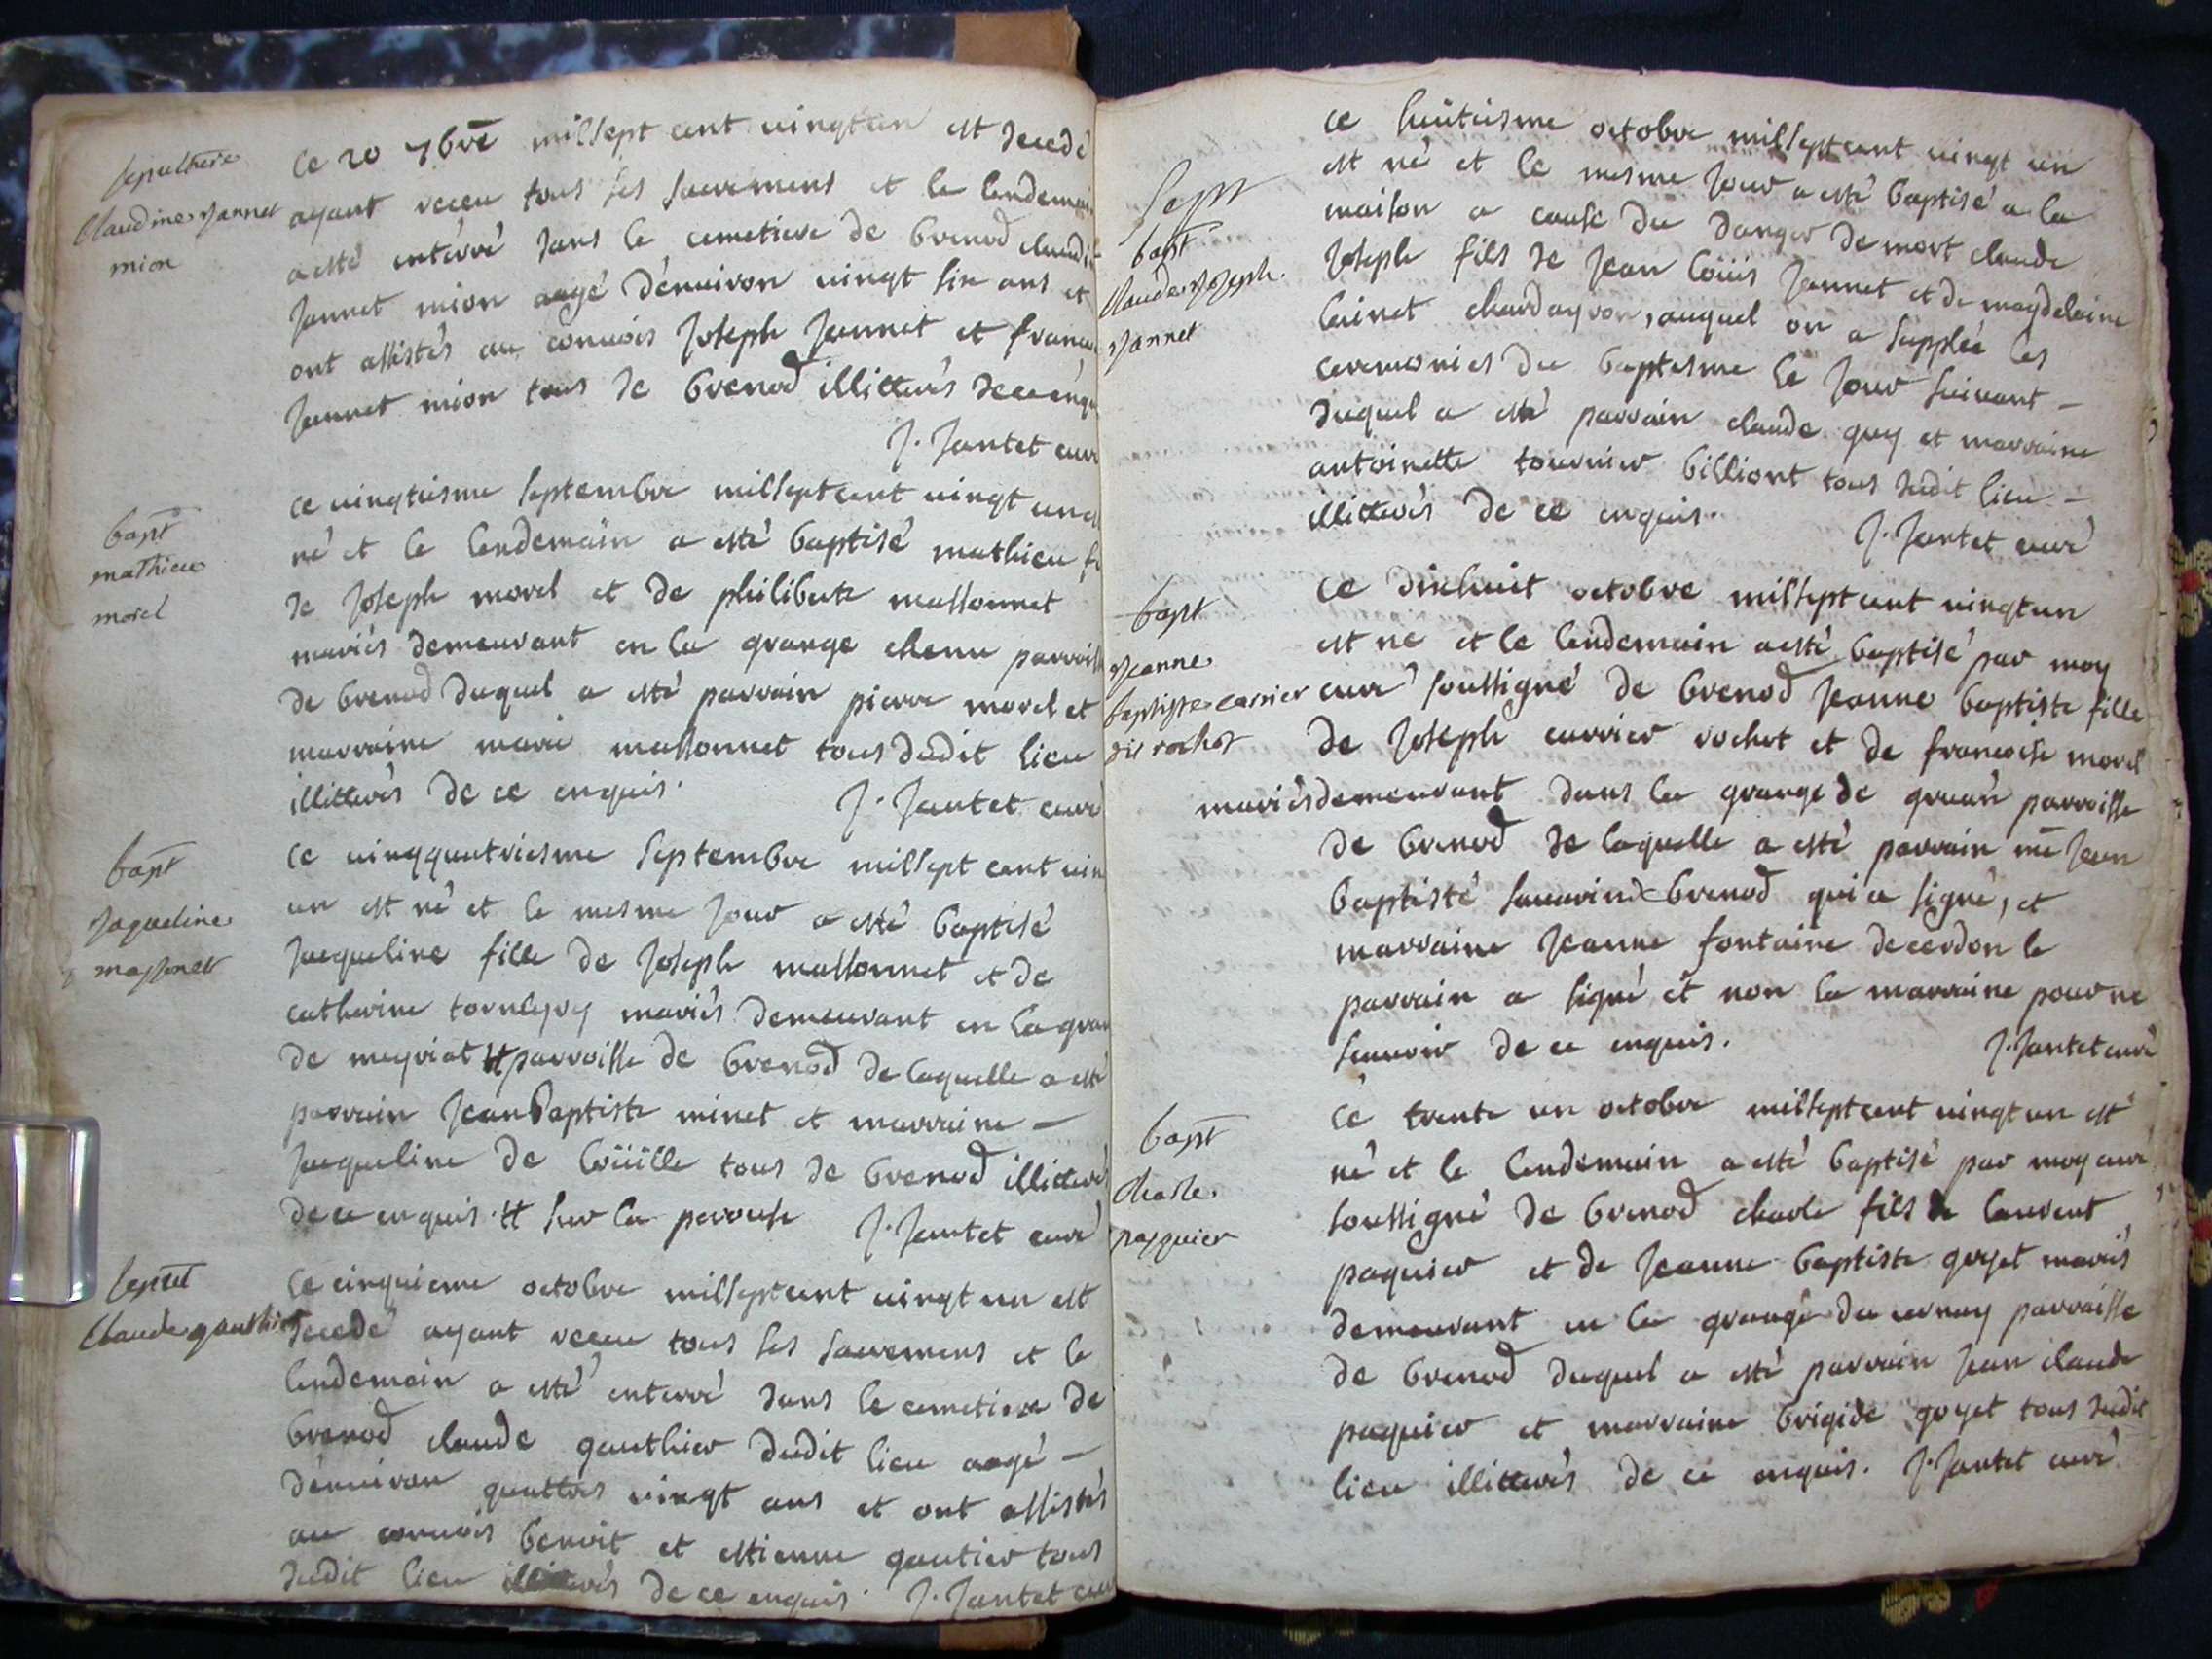 sepulture
Claudine Jannet
mion
Ce 20 7bre mil sept cent vingt un est decedé
ayant receu tous ses sacremens et le lendemain
a esté enterré dans le cemetiere de brenod claudi
Jannet mion aagé d'enuiron vingt six ans et
ont assistés au conuois Joseph Jannet et francoi
Jannet mion tous de brenod illitterés de ce enqu
J. Jantet curé
bapt
mathieu
morel
Ce vingtiesme septembre mil sept cent vingt un est
né et le lendemain a esté baptisé mathieu fi
de Joseph morel et de philiberte massonnet
mariés demeurant en la grange chenu parroisse
de brenod duquel a esté parrain pierre morel et
marraine marie massonnet tous dudit lieu
illitterés de ce enquis. J. Jantet curé
bapt
Jaqueline
massonet
Ce vingquatriesme septembre mil sept cent vin
un est né et le mesme Jour a esté baptisé
Jacqueline fille de Joseph massonnet et de
catherine mariés demeurant en la gran
de meyriat # parroisse de brenod de laquelle a esté
parrain Jean Baptiste minet et marraine -
Jacqueline de loüille tous de brenod illitterés
de ce enquis. # sur la J. Jantet curé
Claude gauthier
Ce cinquieme octobre mil sept cent vingt un est
decedé ayant receu tous ses sacremens et le
lendemain a esté enterré dans le cemetiere de
brenod claude gauthier dudit lieu aagé -
d'enuiron quattres vingt ans et ont assistés
au conuois benoit et estienne gautier tous
dudit lieu illitterés de ce enquis. J. Jantet curé
Sept
bapt
Claude Joseph
Jannet
Ce huitiesme octobre mil sept cent vingt un
est né et le mesme Jour a esté baptisé a la
maison a cause du danger de mort claude
Joseph fils de Jean loüis Jannet et de magdelaine
chardayron, auquel on a supplée les
ceremonies du baptesme le Jour suivant -
duquel a esté parrain claude guy et marraine
antoinette tournier billiont tous dudit lieu -
illitterés de ce enquis.
J. Jantet curé
bapt
Jeanne
baptiste carrier
dit rochet
Ce dixhuit octobre mil sept cent vingt un
est né et le lendemain a esté baptisé par moy
curé soussigné de brenod Jeanne baptiste fille
de Joseph carrier rochet et de francoise morel
mariés demeurant dans la grange de parroisse
de brenod de laquelle a esté parrain me Jean
baptiste sauarin de brenod qui a signé, et
marraine Jeanne fontaine de cerdon le
parrain a signé et non la marraine pour ne
scauoir de ce enquis. J. Jantet curé
bapt
Charle
pasquier
Ce trente un octobre mil sept cent vingt un est
né et le lendemain a esté baptisé par moy curé
soussigné de brenod charle fils de laurent
paquier et de Jeanne baptiste goyet mariés
demeurant en la grange du parroisse
de brenod duquel a esté parrain Jean claude
paquier et marraine brigide goyet tous dudit
lieu illitterés de ce enquis. J. Jantet curé